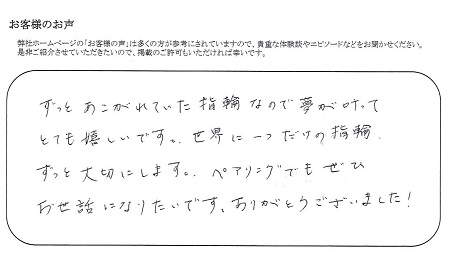 お客様のお声
弊社ホームページの「お客様の声」は多くの方が参考にされていますので、貴重な体験談やエピソードなどをお聞かせください。
是非ご紹介させていただきたいので、掲載のご許可もいただければ幸いです。
ずっとあこがれていた指輪なので夢が叶って
とても嬉しいです。世界に一つだけの指輪、
ずっと大切にします。ペアリングでもぜひ
お世話になりたいです。ありがとうございました!